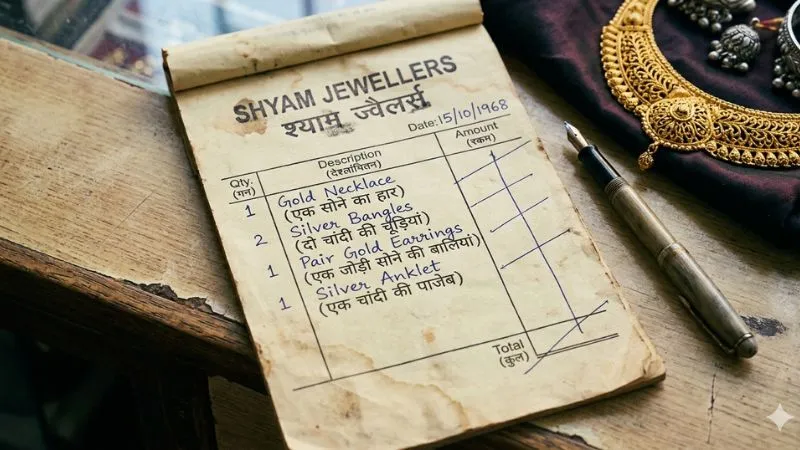 SHYAM JEWELLERS
श्याम ज्वैलर्स
Date: 15/10/1968
Qty. Description Amount
(मन) (देश्लांचितन) (रकम)
1 Gold Necklace
(एक सोने का हार)
2 Silver Bangles
(दो चांदी की चूड़ियां)
1 Pair Gold Earrings
(एक जोड़ी सोने की बालियां)
1 Silver Anklet
(एक चांदी की पाजेब)
Total
(कुल)